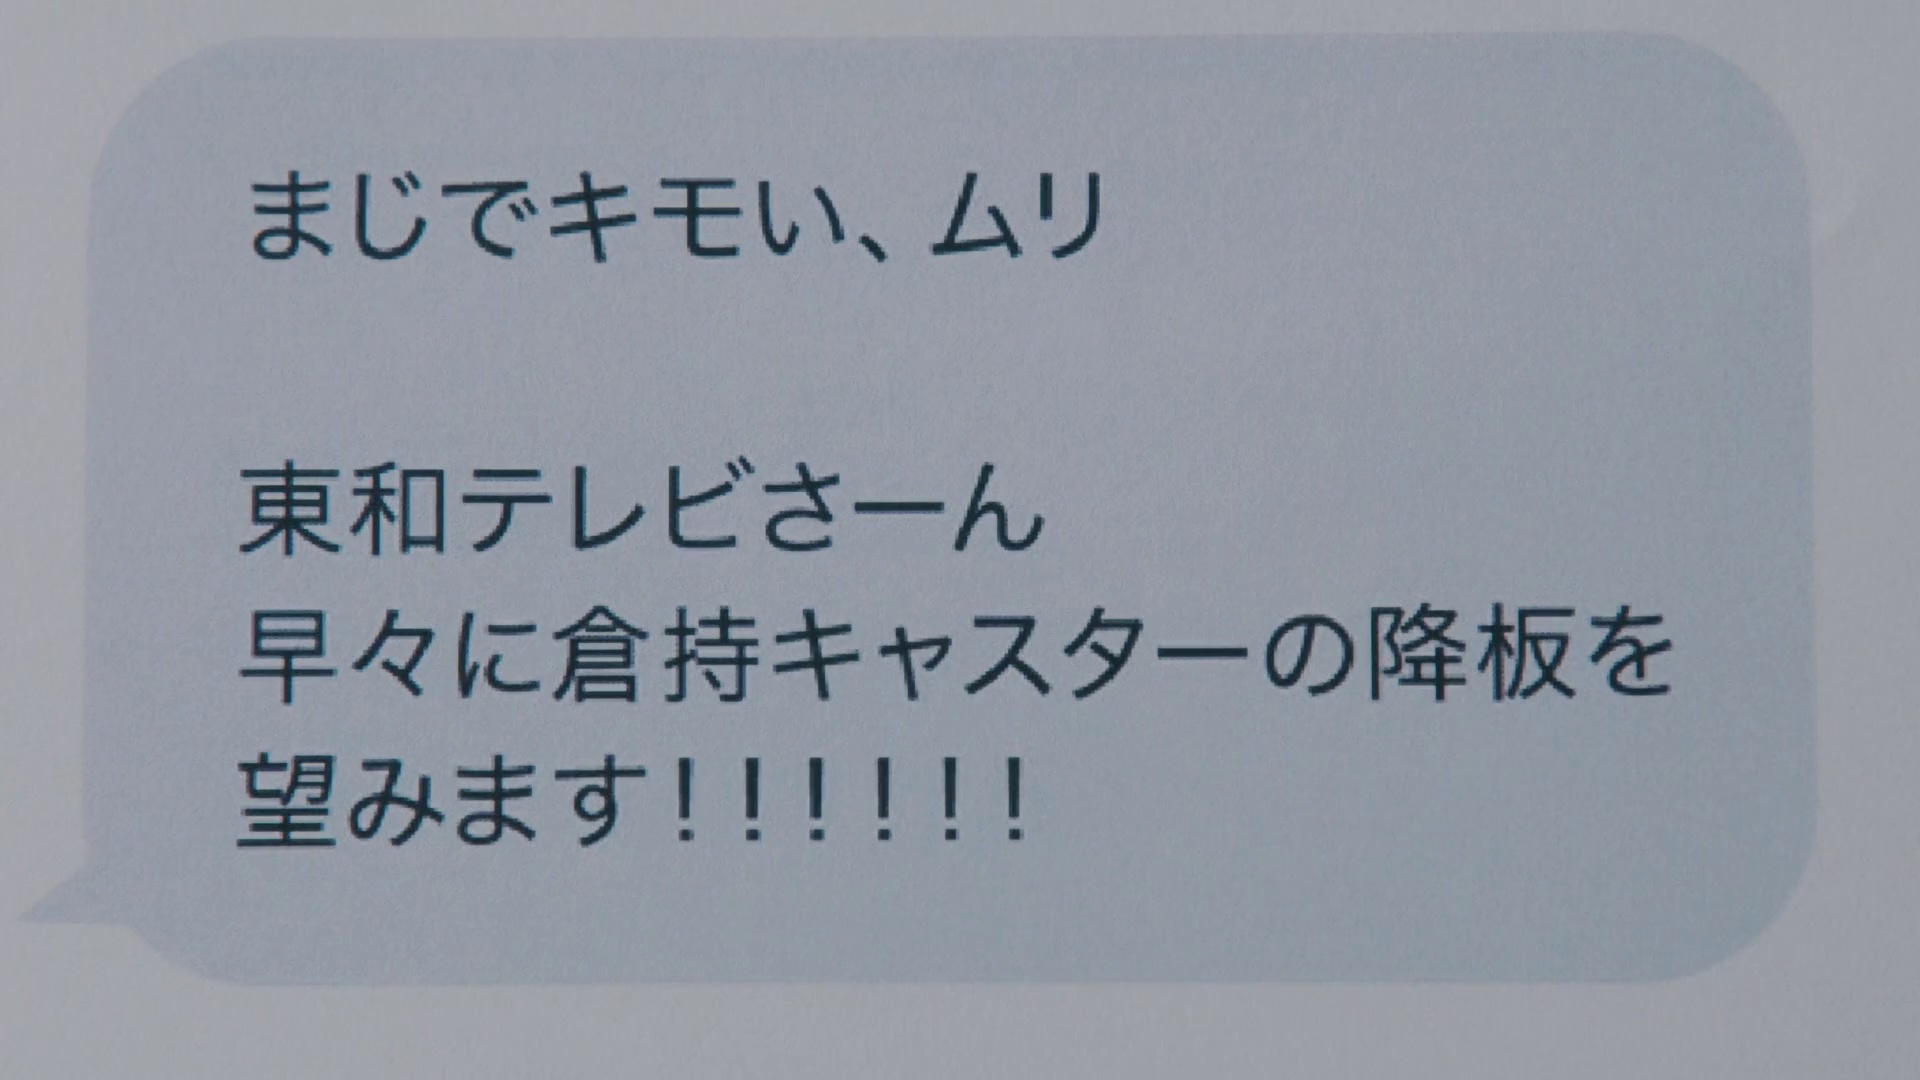 まじでキモい、ムリ
東和テレビさーん
早々に倉持キャスターの降板を
望みます！！！！！！